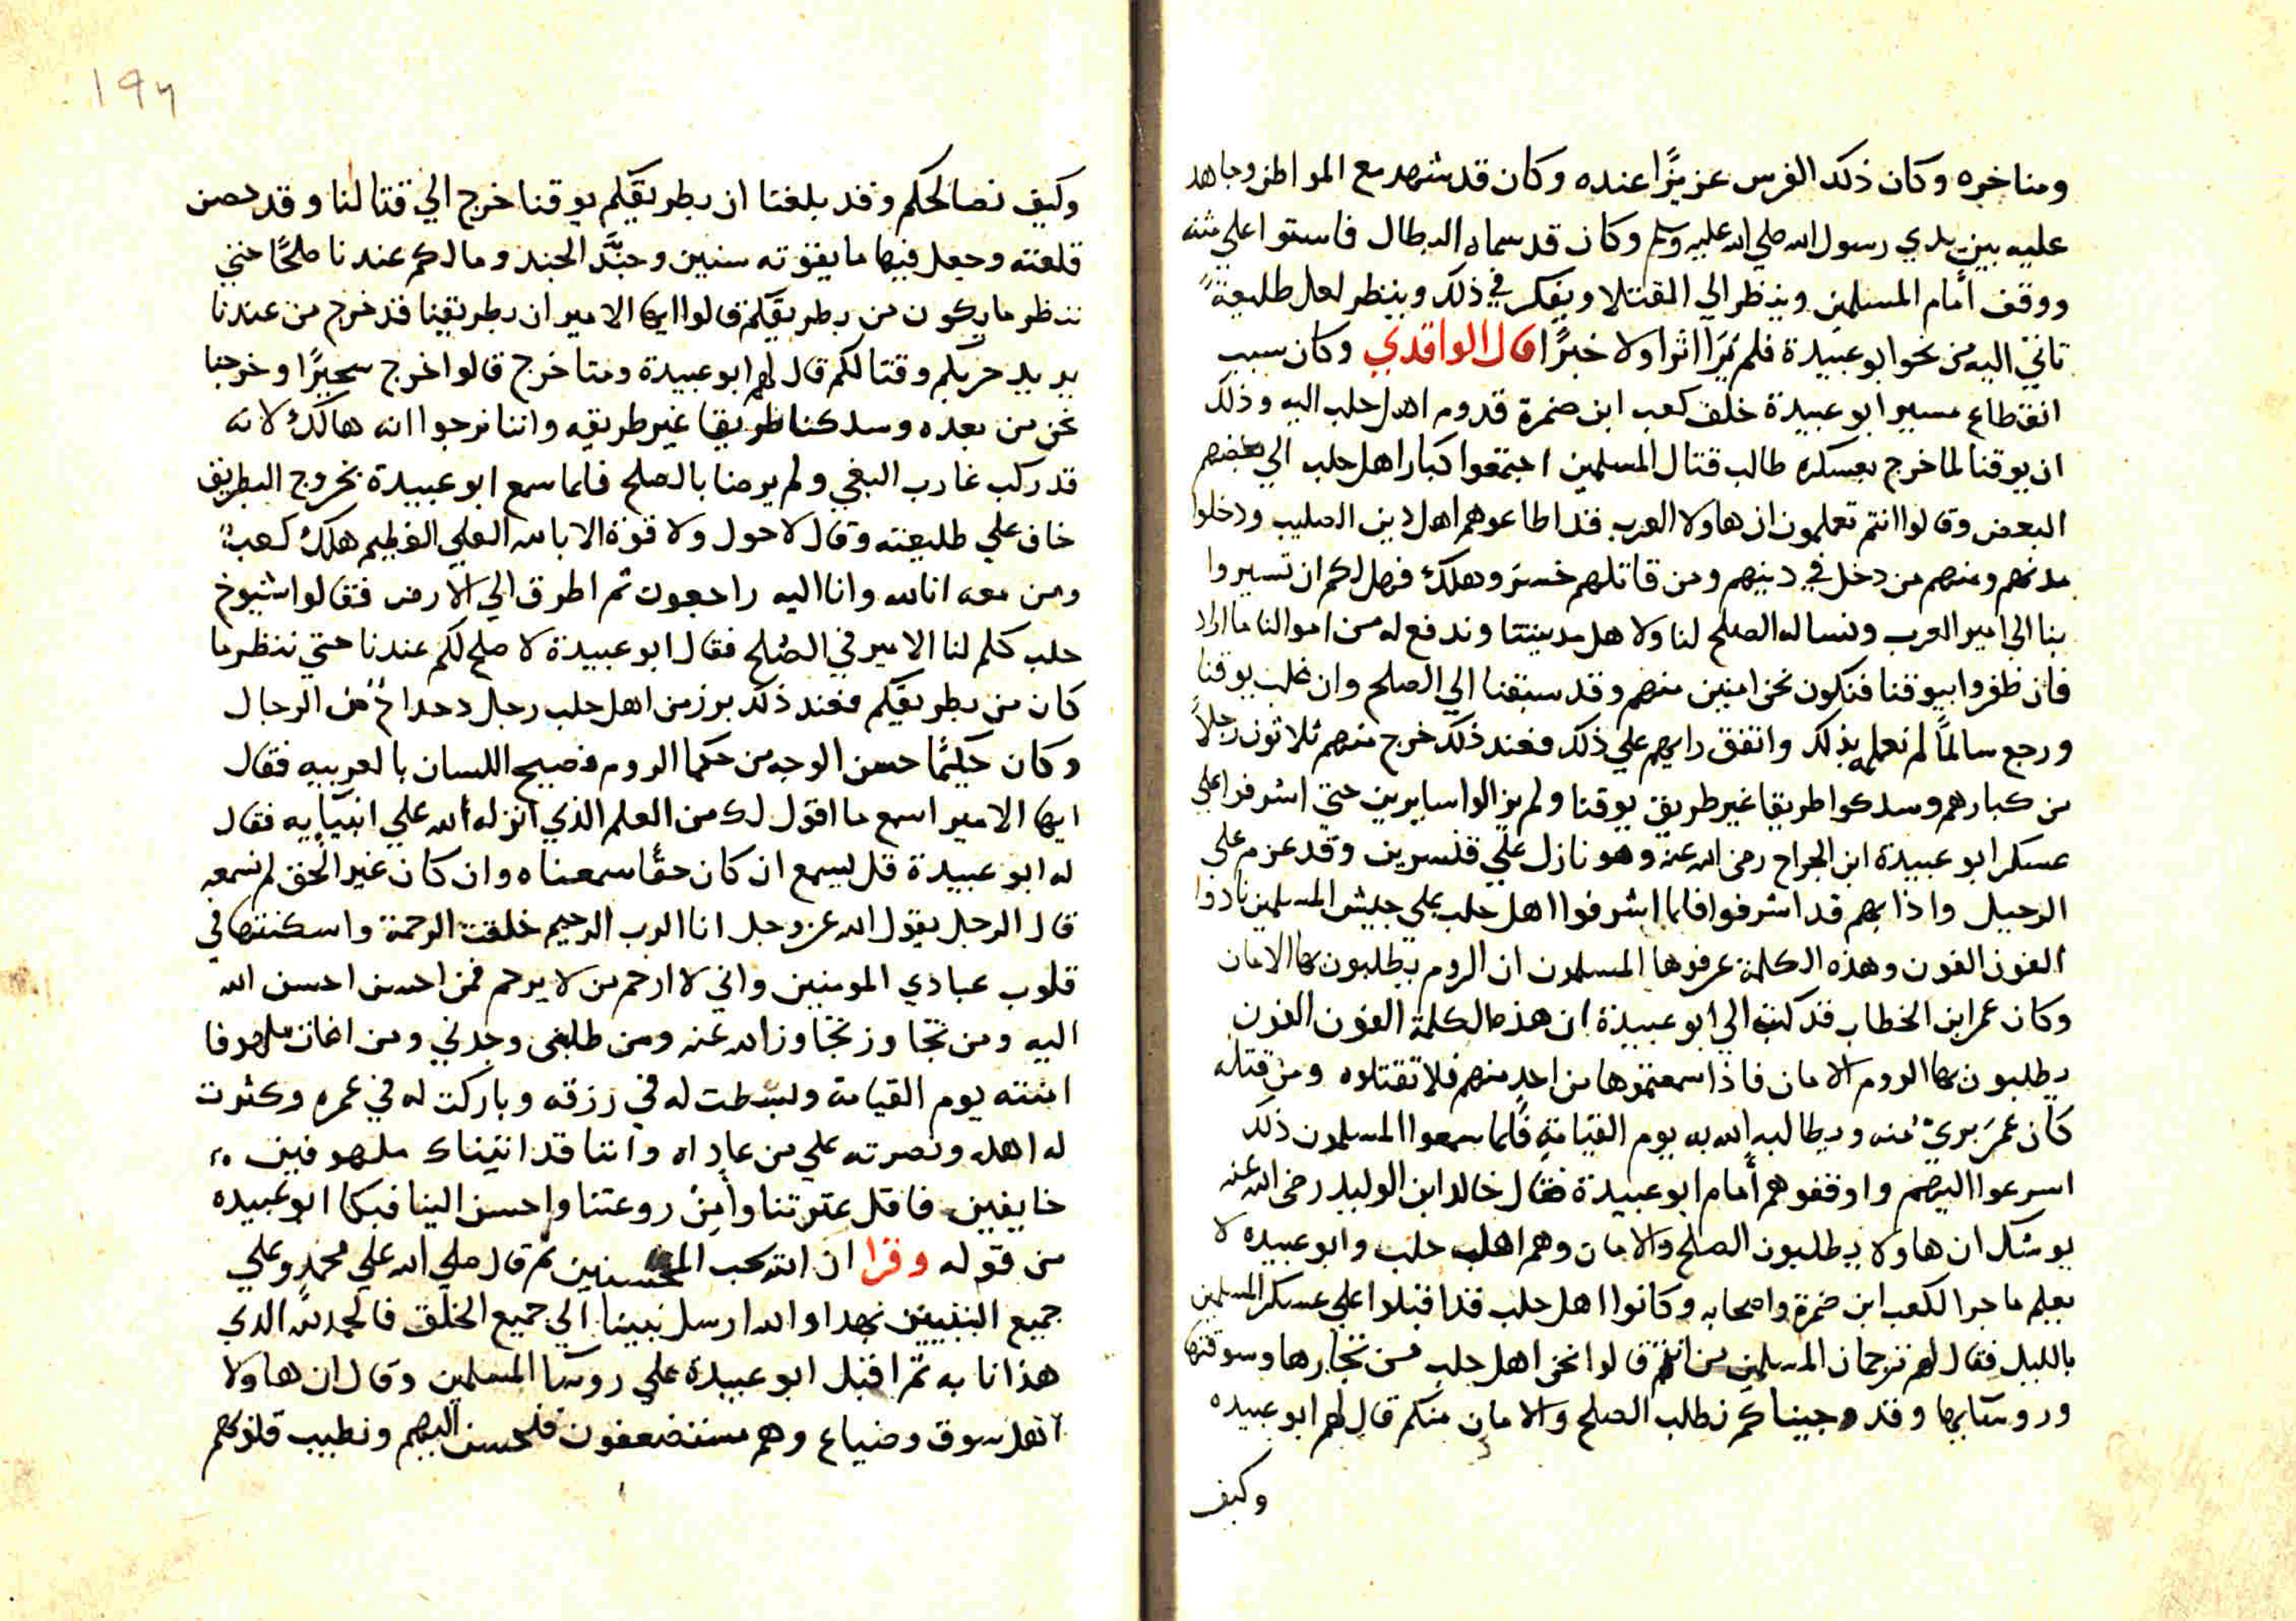 ومناخره وكان ذلك الفرس عزيزًا عنده وكان قد شهد مع المواطن وجاهد
عليه بين يدي رسول الله صلي الله عليه وسلم وكان قد سماه البطال فاستوا علي متنه
ووقف أمام المسلمين وينظر الي القتلا ويفكر في ذلك وينظر لعل طليعةً
تاتي اليه من نحو ابو عبيدة فلم يَرَا اثرا ولا خبرًا قال الواقدي وكان سبب
انقطاع مسير ابو عبيدة خلف كعب ابن ضمرة قدوم اهل حلب اليه وذلك
ان يوقنا لما خرج بعسكره طالب قتال المسلمين اجتمعوا كبار اهل حلب الي بعضهم
البعض وقالوا انتم تعلمون ان هاولا العرب قد اطاعوهم اهل دين الصليب ودخلوا
مدنهم ومنهم من دخل في دينهم ومن قاتلهم خسرَ وهلك فهل لكم ان تسيروا
بنا الي امير العرب ونساله الصلح لنا ولاهل مدينتنا وندفع له من اموالنا ما اراد
فان ظفروا بيوقنا فنكون نحن امنين منهم وقد سبقنا الي الصلح وان غلب يوقنا
ورجع سالمًا لم نعلمه بذلك واتفق رايهم علي ذلك فعند ذلك خرج منهم ثلاثون رجلاً
من كبارهم وسلكوا طريقا غير طريق يوقنا ولم يزالوا سايرين حتي اشرفوا علي
عسكر ابو عبيدة ابن الجراح رضي الله عنه وهو نازل علي قنسرين وقد عزم علي
الرحيل واذا بهم قد اشرفوا فلما اشرفوا اهل حلب علي جيش المسلمين نادوا
الغون الغون وهذه الكلمة عرفوها المسلمون ان الروم يطلبون بها الامان
وكان عمر ابن الخطاب قد كتب الي ابو عبيدة ان هذه الكلمة الغون الغون
يطلبون بها الروم الامان فاذا سمعتموها من احد منهم فلا تقتلوه ومن قتله
كان عمَرَ بريٌ منه ويطالبه الله به يوم القيامة فلما سمعوا المسلمون ذلك
اسرعوا اليهم واوقفوهم أمام ابو عبيدة فقال خالد ابن الوليد رضي الله عنه
يوشك ان هاولا يطلبون الصلح والامان وهم اهل حلب وابو عبيده لا
يعلم ما جرا لكعب ابن ضمرة واصحابه وكانوا اهل حلب قد اقبلوا علي عسكر المسلمين
بالليل فقال لهم ترجمان المسلمين من انتم قالوا نحن اهل حلب من تجارها وسوقتها
وروسايها وقد جيناكم نطلب الصلح والامان منكم قال لهم ابو عبيده
وكيف
١٩٦
وكيف نصالحكم وقد بلغنا ان بطريقكم يوقنا خرج الي قتالنا وقد حصن
قلعته وجعل فيها ما يقوته سنين وجنَّد الجند وما لكم عندنا صلحًا حتي
ننظر ما يكون من بطريقكم قالوا ايها الامير ان بطريقنا قد خرج من عندنا
يريد حربكم وقتالكم قال لهم ابو عبيدة ومتا خرج قالوا خرج سحيرًا وخرجنا
نحن من بعده وسلكنا طريقا غير طريقه واننا نرجوا انه هالكٌ لانه
قد ركب غارب البغي ولم يرضا بالصلح فلما سمع ابو عبيدة بخروج البطريق
خاف علي طليعته وقال لا حول ولا قوة الا بالله العلي العظيم هلك كعبٌ
ومن معه انا لله وانا اليه راجعون ثم اطرق الي الارض فقالوا شيوخ
حلب كلم لنا الامير في الصُلح فقال ابو عبيدة لا صلح لكم عندنا حتي ننظر ما
كان من بطريقكم فعند ذلك برز من اهل حلب رجل من الرجال
وكان حكيمًا حسن الوجه من حكما الروم فصيح اللسان بالعربيه فقال
ايها الامير اسمع ما اقول لك من العلم الذي انزله الله علي انبيآيه فقال
له ابو عبيدة قل ليسمع ان كان حقًا سمعناه وان كان غير الحق لم نسمعه
قال الرجل يقول الله عز وجل انا الرب الرحيم خلقت الرحمة واسكنتها في
قلوب عبادي المومنين واني لا ارحم من لا يرحم فمن احسن احسن الله
اليه ومن تجاوز تجاوز الله عنه ومن طلبني وجدني ومن اغاث ملهوفا
امنته يوم القيامة وبسطت له في رزقه وباركت له في عمره وكثرت
له اهله ونصرته علي من عاداه واننا قد اتيناك ملهوفين
خايفين فاقل عثرتنا وأمن روعتنا واحسن الينا فبكا ابو عبيده
من قوله وقرا ان الله يحب المحسنين ثم قال صلي الله علي محمد وعلي
جميع النبيين بهذا والله ارسل نبينا الي جميع الخلق فالحمد لله الدي
هذانا به ثم اقبل ابو عبيدة علي روسا المسلمين وقال ان هاولا
اهل سوق وضياع وهم مستضعفون فلنحسن اليهم ونطيب قلوبهم